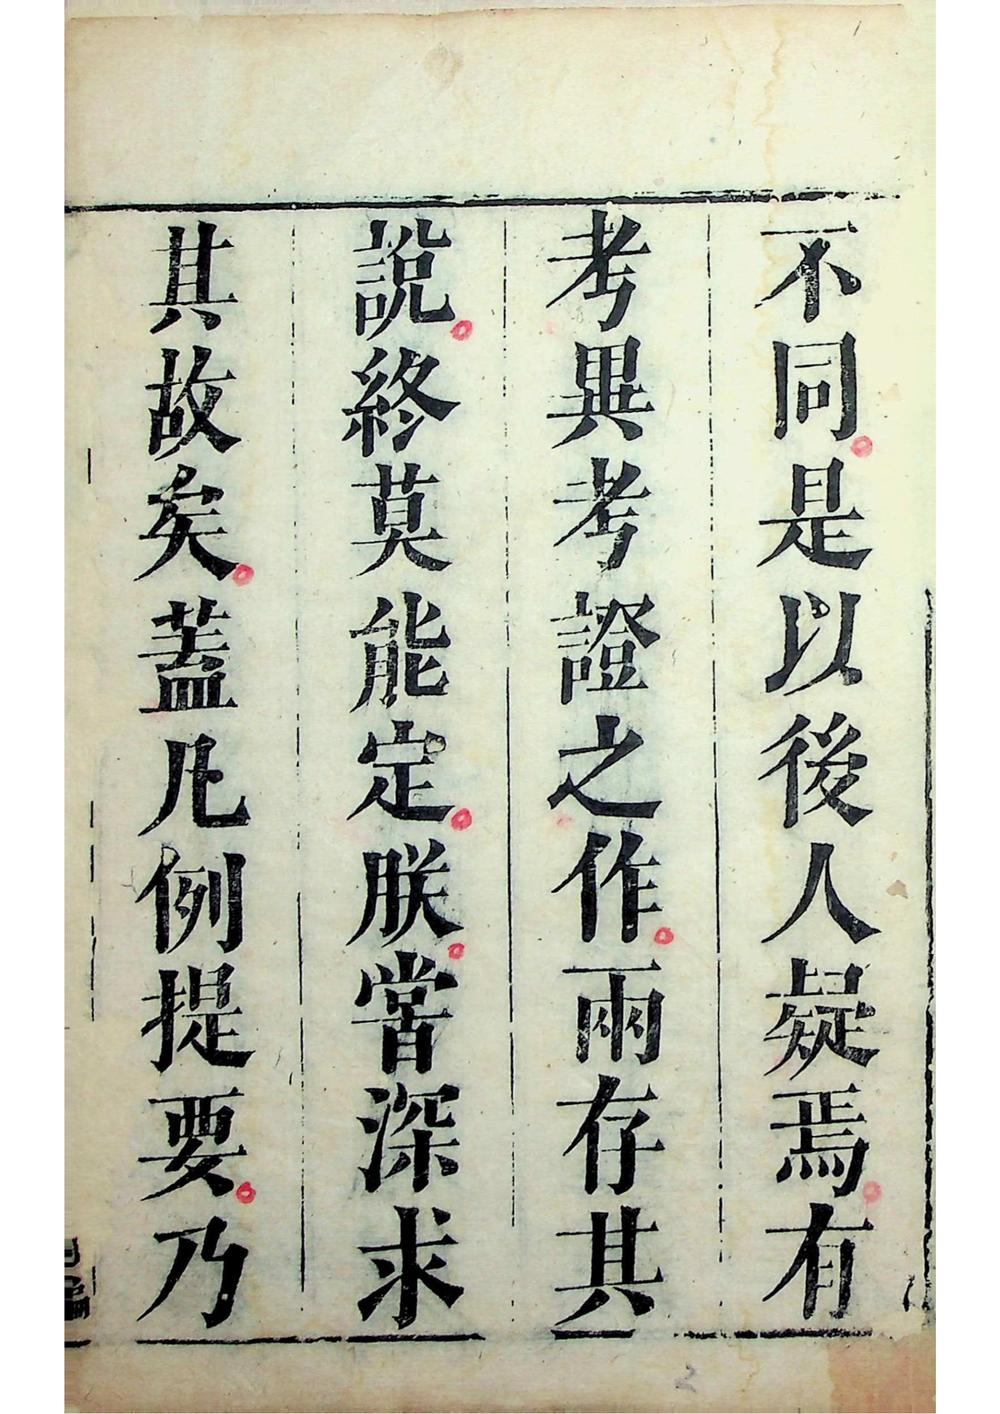 不同是以後人疑焉有
考異考證之作兩存其
說終莫能定朕嘗深求
其故矣蓋凡例提要乃